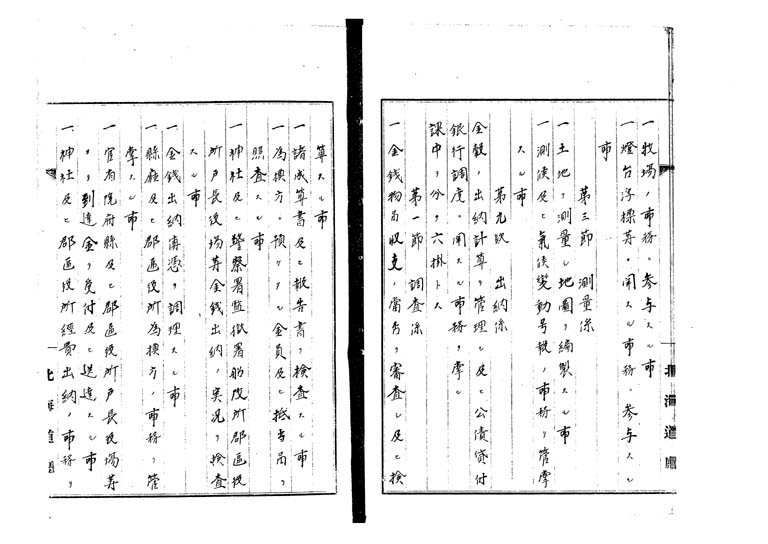 一牧場ノ市務ニ参与スル市
一燈台浮標等ニ関スル市務ニ参与スル
市
第三節 測量係
一土地ヲ測量シ地図ヲ編製スル市
一測候及ヒ気候変動号報ノ市務ヲ管掌
スル市
第九款 出納係
金穀ノ出納計算ヲ管理シ及ヒ公債貸付
銀行調度ニ関スル市務ヲ掌ル
課中ヲ分テ六掛トス
第一節 調査係
一金銭物品収支ノ当否ヲ審査シ及ヒ検
北海道庁
算スル市
一諸成算書及ヒ報告書ヲ検査スル市
一為換方ニ預ケタル金員及ヒ抵当品ヲ
照査スル市
一神社及ヒ警察署監獄署船改所郡区役
所戸長役場等金銭出納ノ実況ヲ検査
スル市
一金銭出納簿憑ヲ調理スル市
一県庁及ヒ郡区役所為換方ノ市務ヲ管
掌スル市
一官省院府県及ヒ郡区役所戸長役場等
ヨリ到達金ヲ受付及ヒ逓達スル市
一神社及ヒ郡区役所経費出納ノ市務ヲ
北海道庁